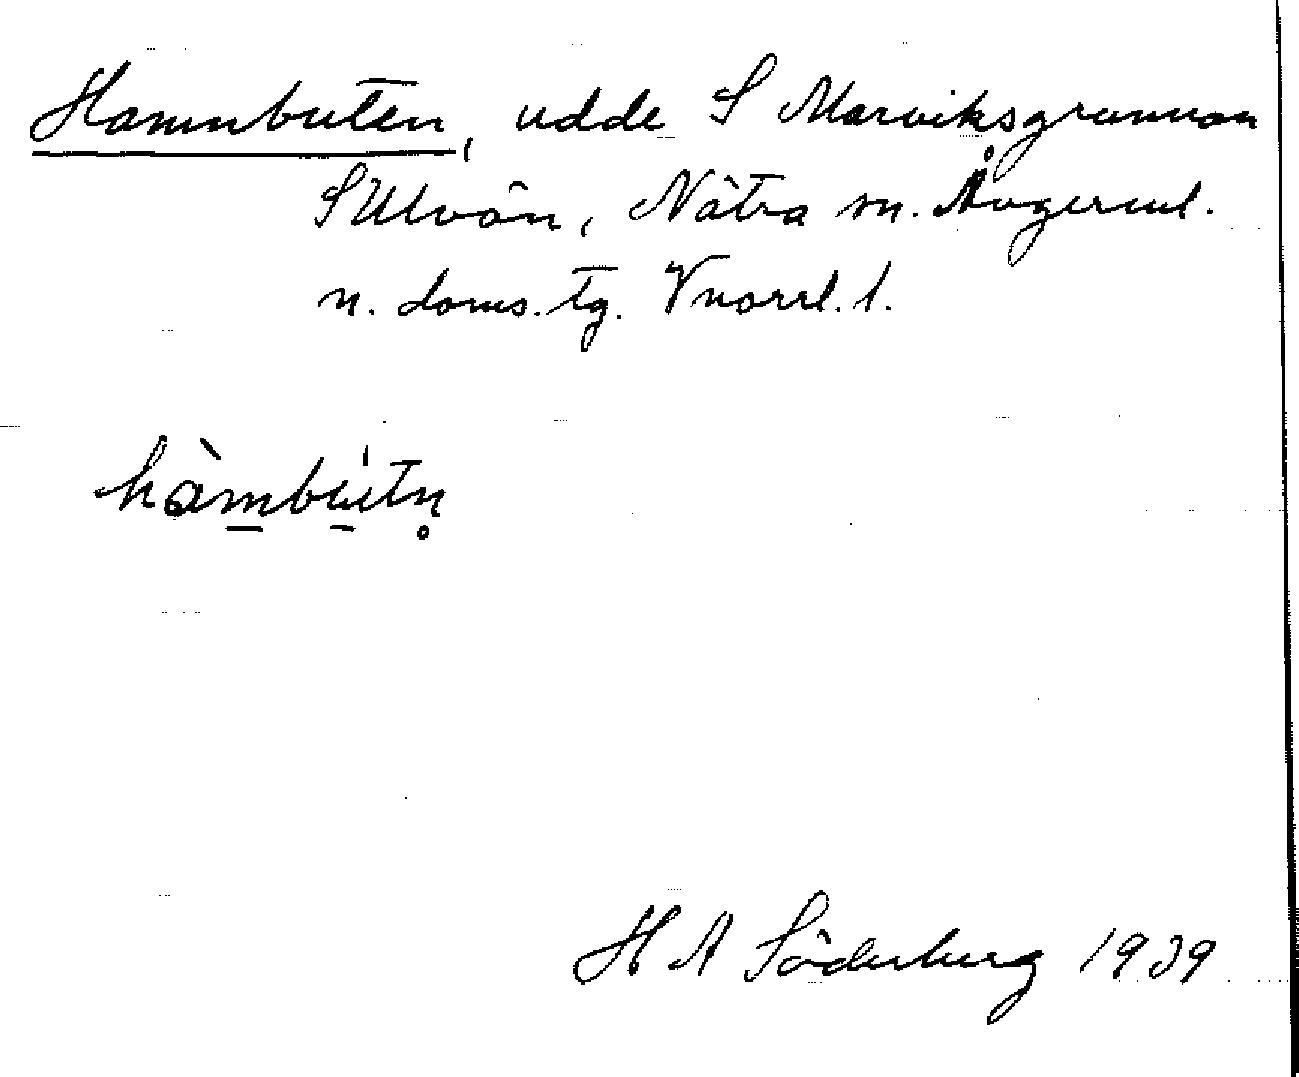 Hamnbuten, udde S Marviksgrunnan
S Ulvön, Nätra sn. Ångerml.
n. doms. tg. Vnorrl. l.
hàmbu̍tn̥
H A Söderberg 1939